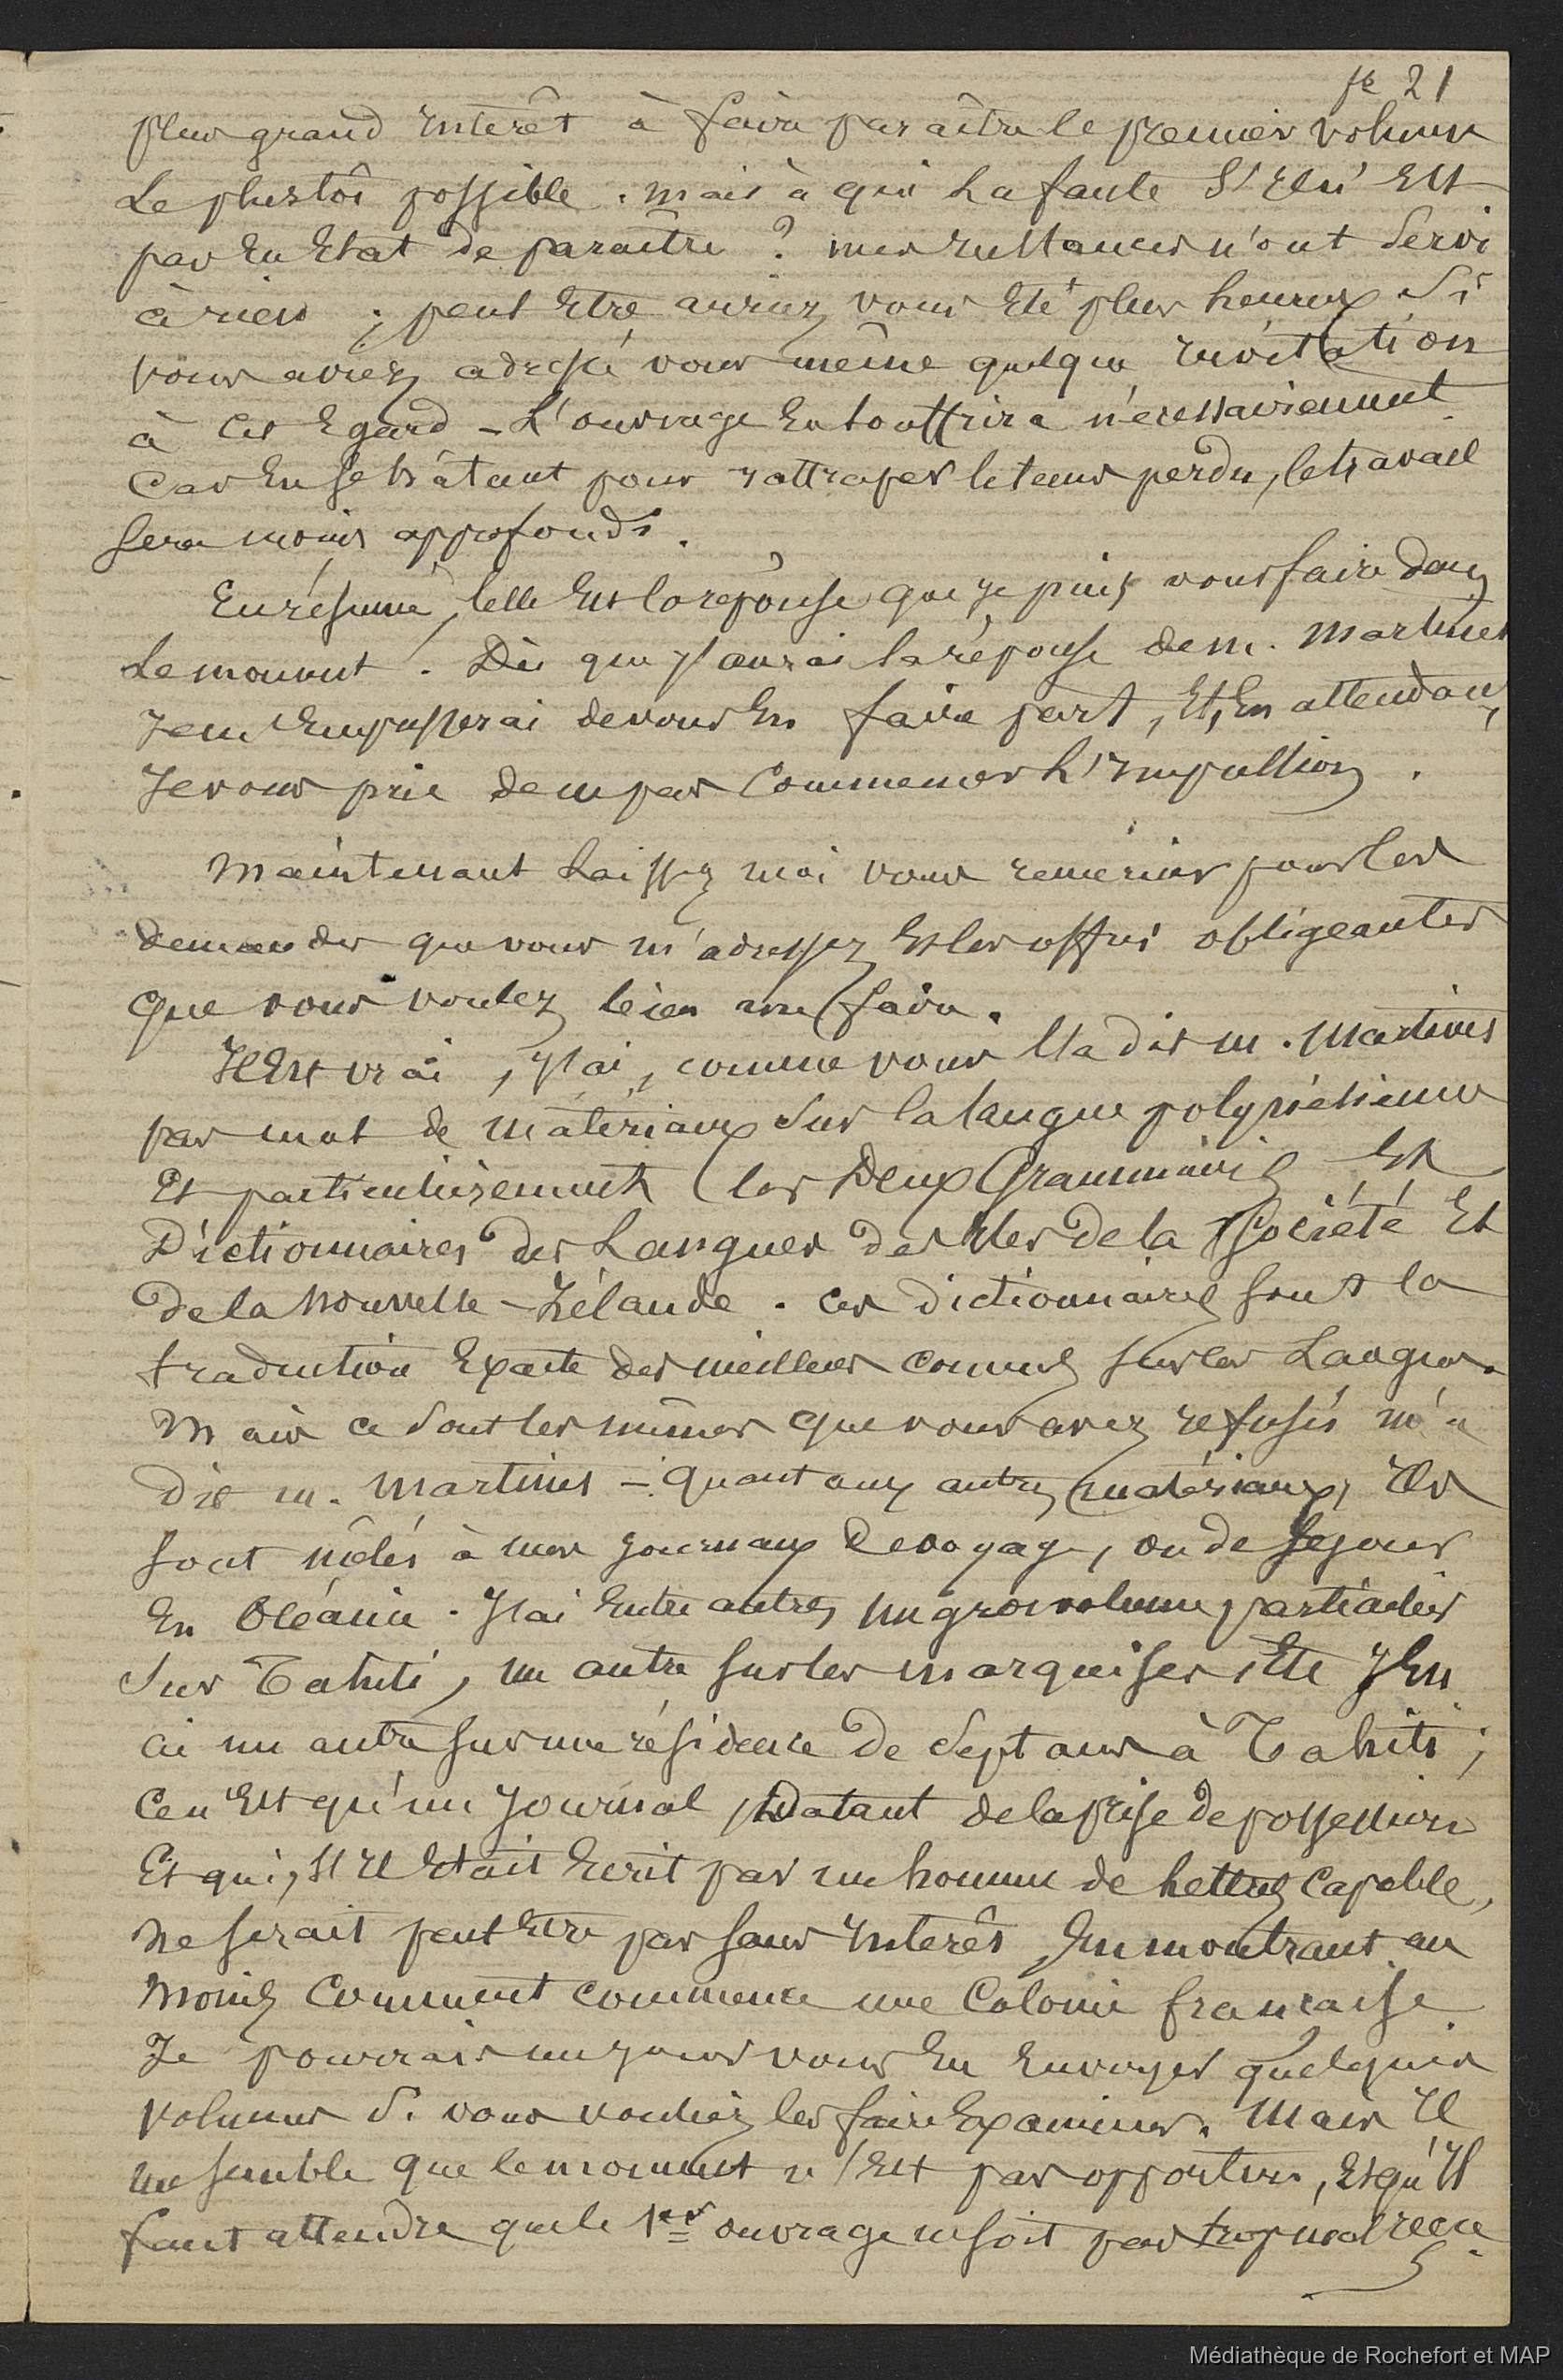 pr 21
plus grand intérêt à faire paraître le premier volume
le plustôt possible. mais à qui la faute s'il n'est
pas en état de paraître ? mes instances n'ont servi
à rien ; peut être auriez vous été plus heureux si
vous aviez adressé vous même quelque invitation
à cet égard – L'ouvrage en souffrira nécessairement
car en se hâtant pour rattraper le tems perdu, le travail
sera moins approfondi.
En résumé, telle est la réponse que je puis vous faire dans
le moment. Dès que j'aurai la réponse de m. Martinet
je m'empresserai de vous en faire part, et, en attendant,
je vous prie de ne pas commencer l'impression.
Maintenant laissez moi vous remercier pour les
demandes que vous m'adressez et les offres obligeantes
que vous voulez bien me faire.
Il est vrai, j'ai, comme vous l'a dit m. Martinet
pas mal de matériaux sur la langue polynésienne
et particulièrement les deux Grammaires et
Dictionnaires des Langues des îles de la Société et
de la Nouvelle-Zélande. ces dictionnaires sont la
traduction exacte des meilleurs connus sur les Langues.
Mais ce sont les mêmes que vous avez refusés m'a
dit m. Martinet – Quant aux autres matériaux, ils
sont mêlés à mes journaux de voyage, ou de séjour
en Océanie. J'ai entre autres un gros volume particulier
sur Tahiti, un autre sur les marquises etc J'en
ai un autre sur une résidence de sept ans à Tahiti ;
ce n'est qu'un journal datant de la prise de possession
et qui, s'il était écrit par un homme de lettres capable,
ne serait peut être pas sans intérêt en montrant au
moins comment commence une colonie française.
Je pourrais un jour vous en envoyer quelques
volumes si vous vouliez les faire examiner. Mais il
me semble que le moment n'est pas opportun, et qu'il
faut attendre que le 1er ouvrage ne soit pas trop mal reçu.
Médiathèque de Rochefort et MAP